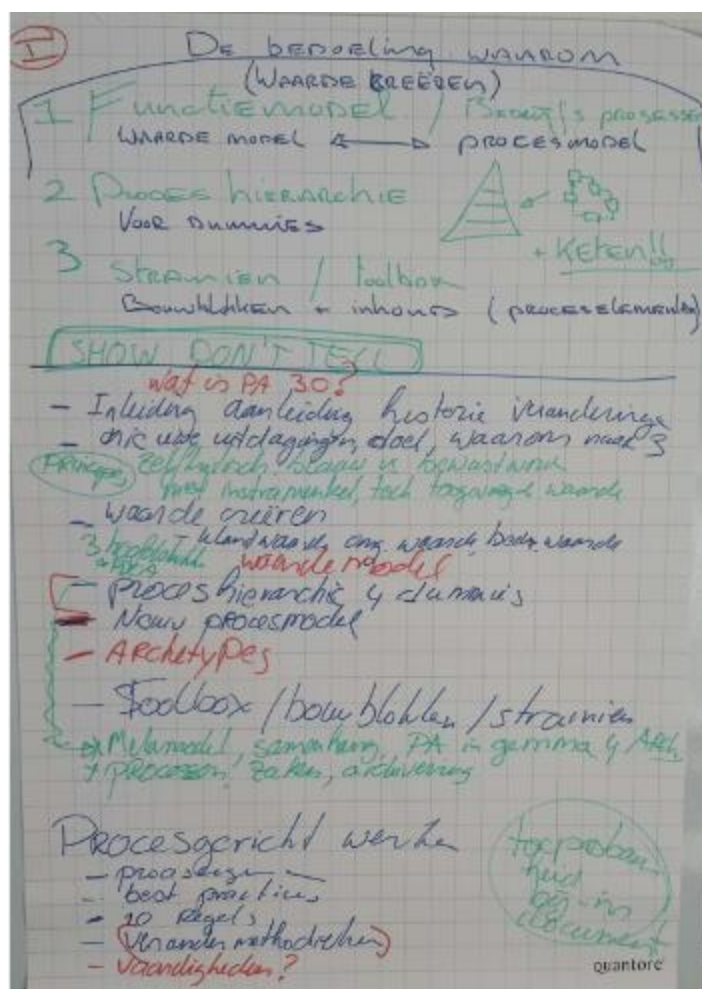 I
De bedoeling waarom
(WAARDE CREËREN)
1 Functiemodel / Bedrijfsprocessen
WAARDE MODEL ↔ PROCESMODEL
2 Proces hiërarchie
Voor Dummies
+ Keten!!
3 Stramien / toolbox
Bouwblokken + inhoud (proceselementen)
SHOW DON'T TELL
Wat is PA 3.0?
- Inleiding aanleiding historie veranderingen
- uitdagingen, doel, waarom naar 3
Principes
niet instrumenteel, toch toegevoegde waarde
- Waarde creëren
- klantwaarde, org. waarde,
3 hoofdstuk
waardemodel
- proceshierarchie 4 dummies
- Nieuw procesmodel
- Archetypes
- Toolbox / bouwblokken / stramien
Metamodel, samenhang, PA in gemma 4 Arch.
+ processen, zaken, archivering
Procesgericht werken
- best practices
- 10 Regels
- (verandermethodieken)
- Vaardigheden?
toepasbaar-
heid
document
quantore